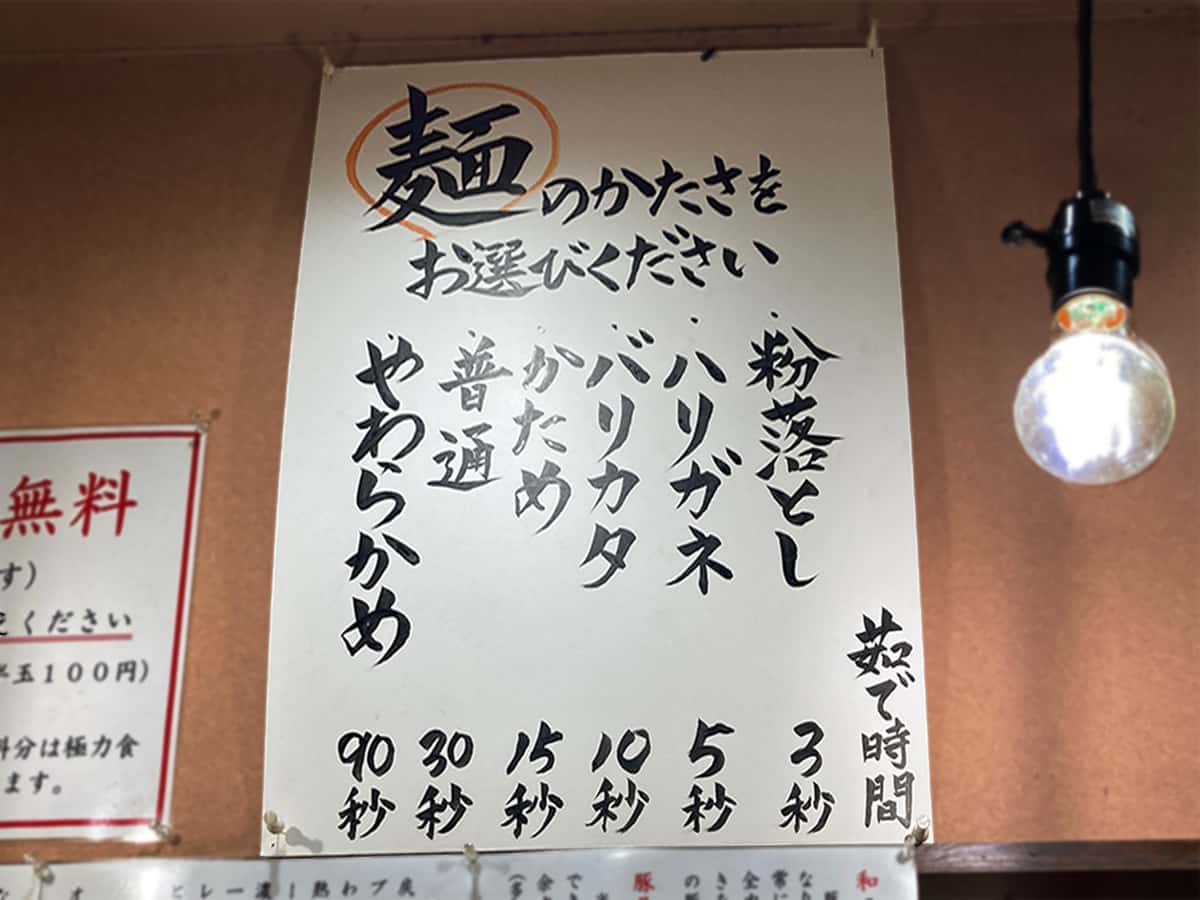 麺のかたさを
お選びください
茹で時間
粉落とし 3秒
ハリガネ 5秒
バリカタ 10秒
かため 15秒
普通 30秒
やわらかめ 90秒
無料
す)
ください
玉100円)
料分は極力食
ます。